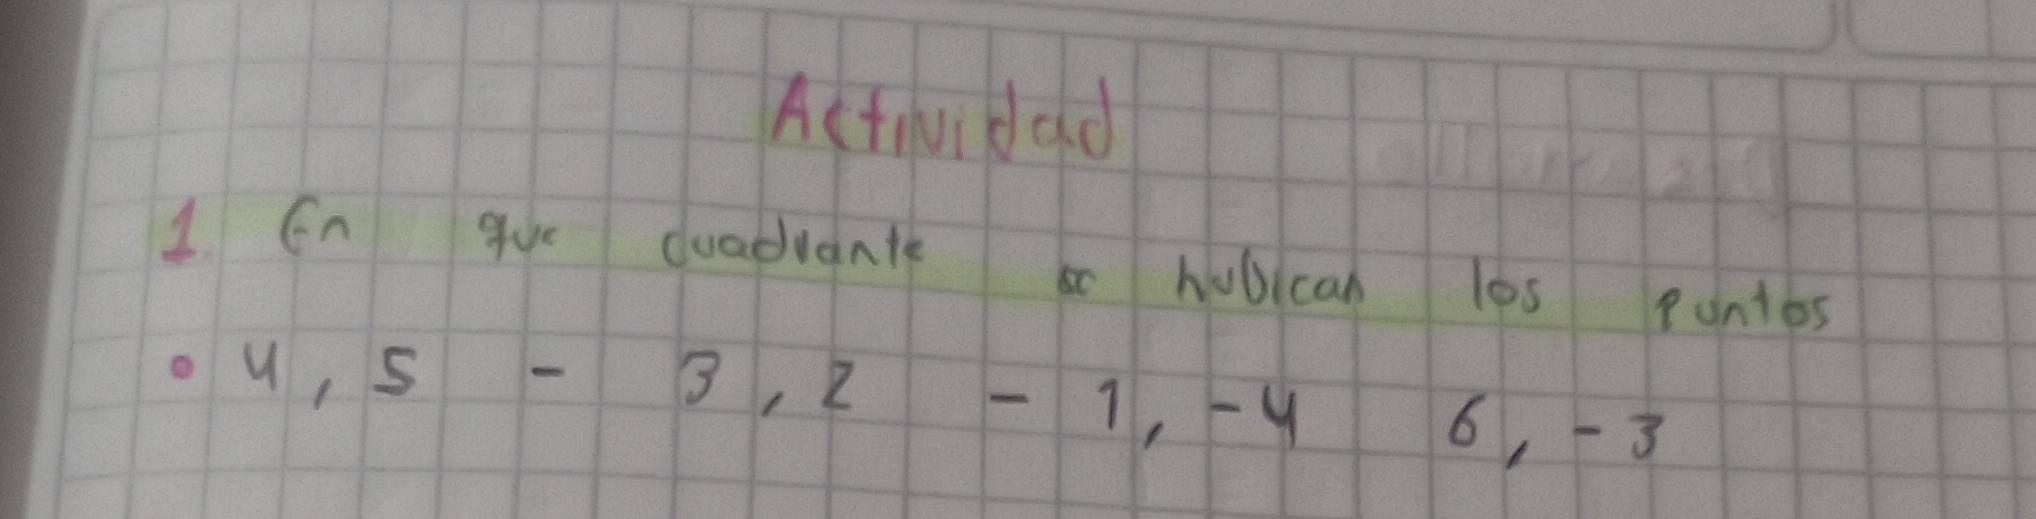 Actividad
1. En que cuadrante se hubican los puntos
• 4, 5 - 3, 2 - 1, -4 6, -3